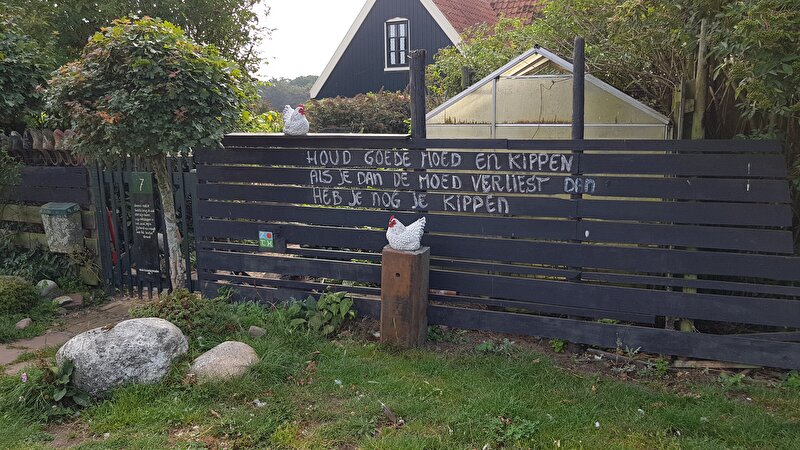 HOUD GOEDE MOED EN KIPPEN
ALS JE DAN DE MOED VERLIEST DAN
HEB JE NOG JE KIPPEN
7